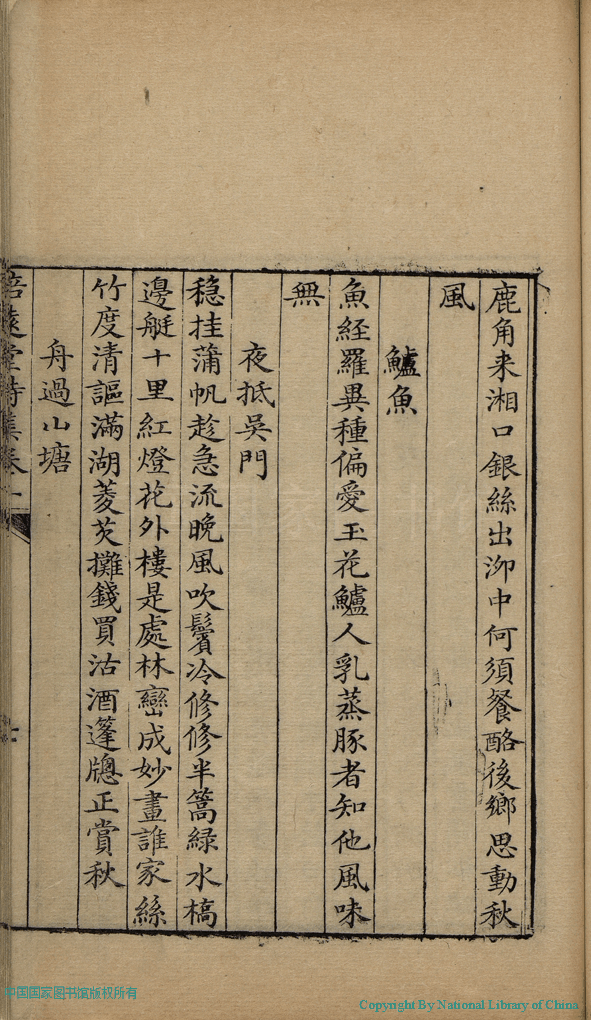 鹿角来湘口銀絲出泖中何須餐酪後鄉思動秋
風
鱸魚
魚経羅異種偏愛玉花鱸人乳蒸豚者知他風味
無
夜抵吳門
稳挂蒲帆趁急流晚風吹鬢冷修修半篙緑水槁
邊艇十里紅燈花外樓是處林巒成妙畫誰家絲
竹度清謳滿湖菱芡攤錢買沽酒篷牕正賞秋
舟過山塘
培遠堂詩集卷一
中国国家图书馆版权所有
Copyright By National Library of China